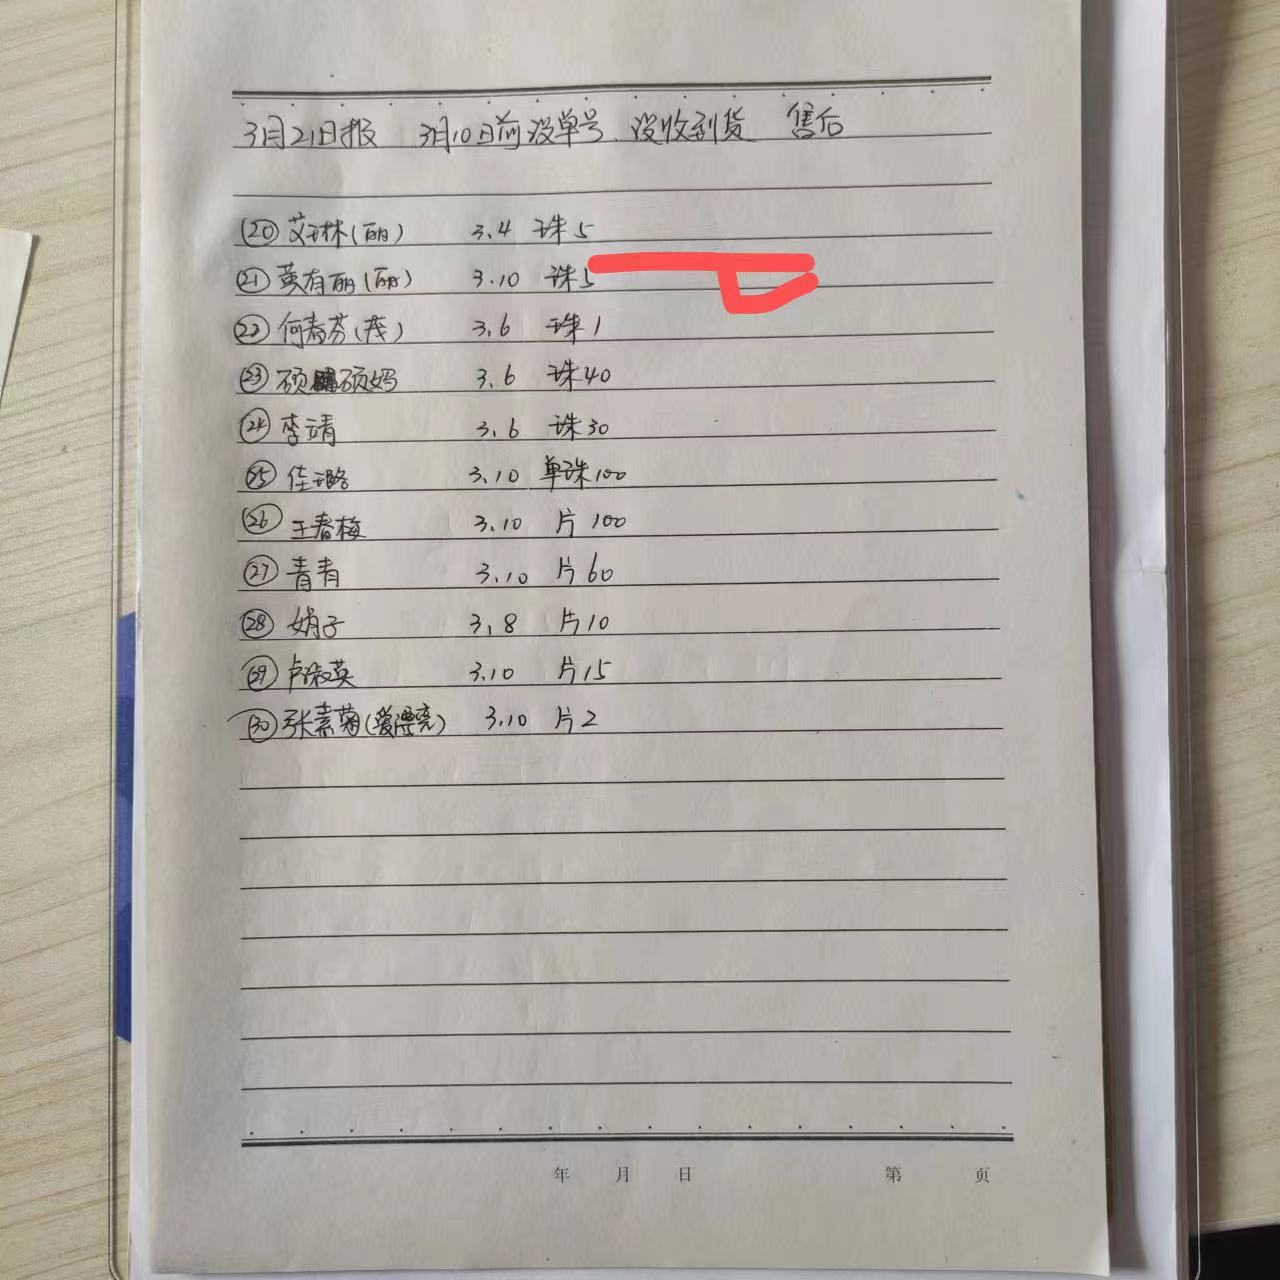 3月21日报 3月10日前没单号、没收到货 售后
⑳ 艾琳(丽) 3.4 珠5
㉑ 黄有丽(丽) 3.10 珠5
㉒ 何春芬(茂) 3.6 珠1
㉓ 硕硕妈 3.6 珠40
㉔ 李靖 3.6 珠30
㉕ 佳璐 3.10 单珠100
㉖ 王春梅 3.10 片100
㉗ 青青 3.10 片60
㉘ 娟子 3.8 片10
㉙ 卢淑英 3.10 片15
㉚ 张素菊(爱漂亮) 3.10 片2
年 月 日 第 页